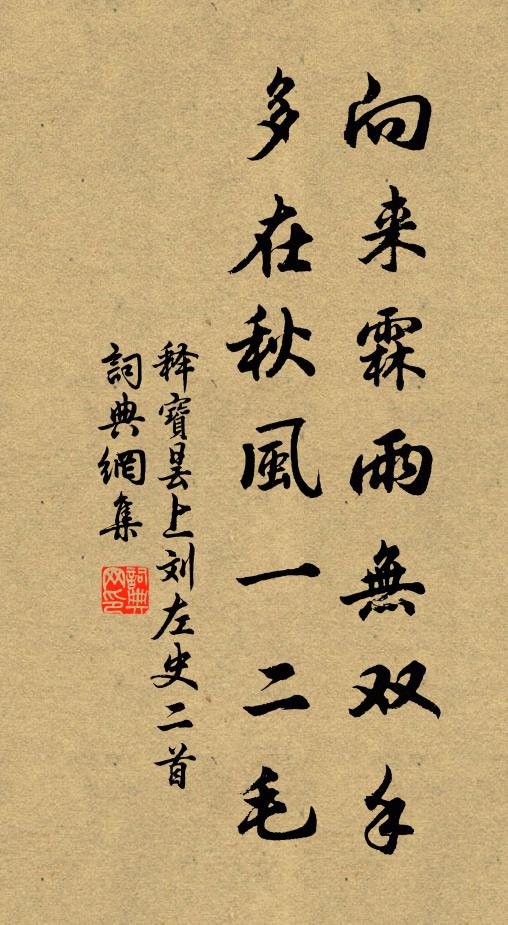 向来霖雨無双手
多在秋風一二毛
释寶昙上刘左史二首
詞典網集
詞典网印